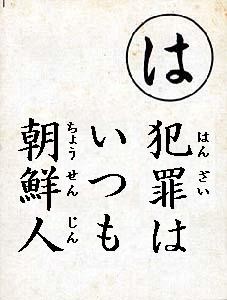 は
犯罪は
いつも
朝鮮人
はんざい
ちょうせんじん